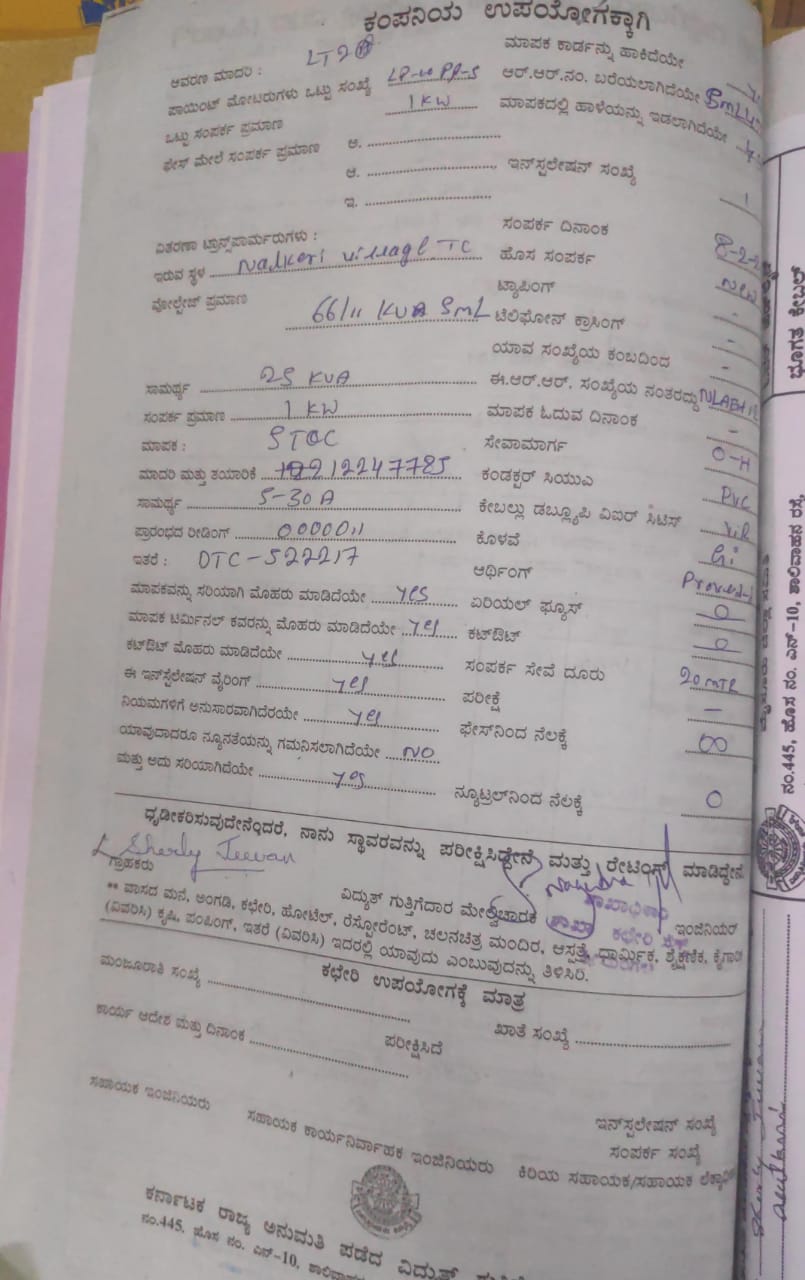 ಕಂಪನಿಯ ಉಪಯೋಗಕ್ಕಾಗಿ
ಆವರಣ ಮಾದರಿ : LT2 ಮಾಪಕ ಕಾರ್ಡನ್ನು ಹಾಕಿದೆಯೇ
ಪಾಯಿಂಟ್ ಮೋಟರುಗಳು ಒಟ್ಟು ಸಂಖ್ಯೆ ಆರ್.ಆರ್.ನಂ. ಬರೆಯಲಾಗಿದೆಯೇ
ಒಟ್ಟು ಸಂಪರ್ಕ ಪ್ರಮಾಣ 1 KW ಮಾಪಕದಲ್ಲಿ ಹಾಳೆಯನ್ನು ಇಡಲಾಗಿದೆಯೇ
ಫೇಸ್ ಮೇಲೆ ಸಂಪರ್ಕ ಪ್ರಮಾಣ ಅ.
ಆ. ಇನ್‌ಸ್ಟಲೇಷನ್ ಸಂಖ್ಯೆ
ಇ.
ವಿತರಣಾ ಟ್ರಾನ್ಸ್‌ಪಾರ್ಮರುಗಳು : ಸಂಪರ್ಕ ದಿನಾಂಕ 8-2-2
ಇರುವ ಸ್ಥಳ Nalkeri villagl TC ಹೊಸ ಸಂಪರ್ಕ New
ವೋಲ್ಟೇಜ್ ಪ್ರಮಾಣ ಟ್ಯಾಪಿಂಗ್ -
66/11 KVA SML ಟೆಲಿಫೋನ್ ಕ್ರಾಸಿಂಗ್ -
ಯಾವ ಸಂಖ್ಯೆಯ ಕಂಬದಿಂದ -
ಸಾಮರ್ಥ್ಯ 25 KVA ಈ.ಆರ್.ಆರ್. ಸಂಖ್ಯೆಯ ನಂತರದ್ದು
ಸಂಪರ್ಕ ಪ್ರಮಾಣ 1 KW ಮಾಪಕ ಓದುವ ದಿನಾಂಕ -
ಮಾಪಕ : ಸೇವಾಮಾರ್ಗ O-H
ಮಾದರಿ ಮತ್ತು ತಯಾರಿಕೆ 212247785 ಕಂಡಕ್ಟರ್ ಸಿಯುವಿ PVC
ಸಾಮರ್ಥ್ಯ 5-30A ಕೇಬಲ್ಲು ಡಬ್ಲ್ಯೂಪಿ ವಿಐರ್ ಸಿಟಿಸ್ ViR
ಪ್ರಾರಂಭದ ರೀಡಿಂಗ್ 00000 ಕೊಳವೆ Gi
ಇತರೆ : DTC-522217 ಆರ್ಥಿಂಗ್ Provided
ಮಾಪಕವನ್ನು ಸರಿಯಾಗಿ ಮೊಹರು ಮಾಡಿದೆಯೇ yes ಏರಿಯಲ್ ಫ್ಯೂಸ್ 0
ಮಾಪಕ ಟರ್ಮಿನಲ್ ಕವರನ್ನು ಮೊಹರು ಮಾಡಿದೆಯೇ yes ಕಟ್‌ಔಟ್ 0
ಕಟ್‌ಔಟ್ ಮೊಹರು ಮಾಡಿದೆಯೇ yes ಸಂಪರ್ಕ ಸೇವೆ ದೂರು 20 mtr
ಈ ಇನ್‌ಸ್ಟಲೇಷನ್ ವೈರಿಂಗ್ yes ಪರೀಕ್ಷೆ -
ನಿಯಮಗಳಿಗೆ ಅನುಸಾರವಾಗಿದೆರಯೇ yes ಫೇಸ್‌ನಿಂದ ನೆಲಕ್ಕೆ ∞
ಯಾವುದಾದರೂ ನ್ಯೂನತೆಯನ್ನು ಗಮನಿಸಲಾಗಿದೆಯೇ NO
ಮತ್ತು ಅದು ಸರಿಯಾಗಿದೆಯೇ yes ನ್ಯೂಟ್ರಲ್‌ನಿಂದ ನೆಲಕ್ಕೆ 0
ಧೃಡೀಕರಿಸುವುದೇನೆಂದರೆ, ನಾನು ಸ್ಥಾವರವನ್ನು ಪರೀಕ್ಷಿಸಿದ್ದೇನೆ ಮತ್ತು ರೇಟಿಂಗ್ ಮಾಡಿದ್ದೇನೆ
Sherly Jeevan
ಗ್ರಾಹಕರು ವಿದ್ಯುತ್ ಗುತ್ತಿಗೆದಾರ ಮೇಲ್ವಿಚಾರಕ ಇಂಜಿನಿಯರ್
** ವಾಸದ ಮನೆ, ಅಂಗಡಿ, ಕಛೇರಿ, ಹೋಟೆಲ್, ರೆಸ್ಟೋರೆಂಟ್, ಚಲನಚಿತ್ರ ಮಂದಿರ, ಆಸ್ಪತ್ರೆ, ಧಾರ್ಮಿಕ, ಶೈಕ್ಷಣಿಕ, ಕೈಗಾರಿ
(ವಿವರಿಸಿ) ಕೃಷಿ, ಪಂಪಿಂಗ್, ಇತರೆ (ವಿವರಿಸಿ) ಇದರಲ್ಲಿ ಯಾವುದು ಎಂಬುವುದನ್ನು ತಿಳಿಸಿರಿ.
ಕಛೇರಿ ಉಪಯೋಗಕ್ಕೆ ಮಾತ್ರ
ಮಂಜೂರಾತಿ ಸಂಖ್ಯೆ ಖಾತೆ ಸಂಖ್ಯೆ
ಕಾರ್ಯ ಆದೇಶ ಮತ್ತು ದಿನಾಂಕ ಪರೀಕ್ಷಿಸಿದೆ
ಇನ್‌ಸ್ಟಲೇಷನ್ ಸಂಖ್ಯೆ
ಸಂಪರ್ಕ ಸಂಖ್ಯೆ
ಸಹಾಯಕ ಇಂಜಿನಿಯರು ಸಹಾಯಕ ಕಾರ್ಯನಿರ್ವಾಹಕ ಇಂಜಿನಿಯರು ಕಿರಿಯ ಸಹಾಯಕ/ಸಹಾಯಕ
ಕರ್ನಾಟಕ ರಾಜ್ಯ ಅನುಮತಿ ಪಡೆದ ವಿದ್ಯುತ್
ನಂ.445, ಹೊಸ ನಂ. ಎನ್-10,
ಭೂಗತ ಕೇಬಲ್
ನಂ.445, ಹೊಸ ನಂ. ಎನ್-10, ಶಾಲಿವಾಹನ ರಸ್ತೆ